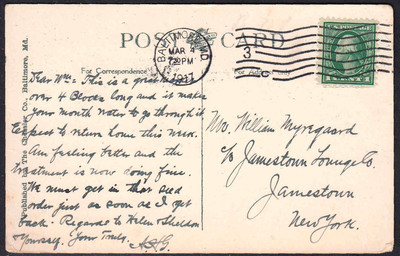 POST CARD
For Correspondence
For Address Only
BALTIMORE, MD.
MAR 4
7 30 PM
1917
3
C
Published by The Chessler Co., Baltimore, Md.
Dear Wm: This is a great market
over 4 Blocks long and it makes
your mouth water to go through it
Expect to return home this week.
Am feeling better and the
treatment is now doing fine.
We must get in that seed
order just as soon as I get
back. Regards to Helen Sheldon
& Yourself. Yours Truly.
Mr. William Myregaard
c/o Jamestown Lounge Co.
Jamestown
New York.